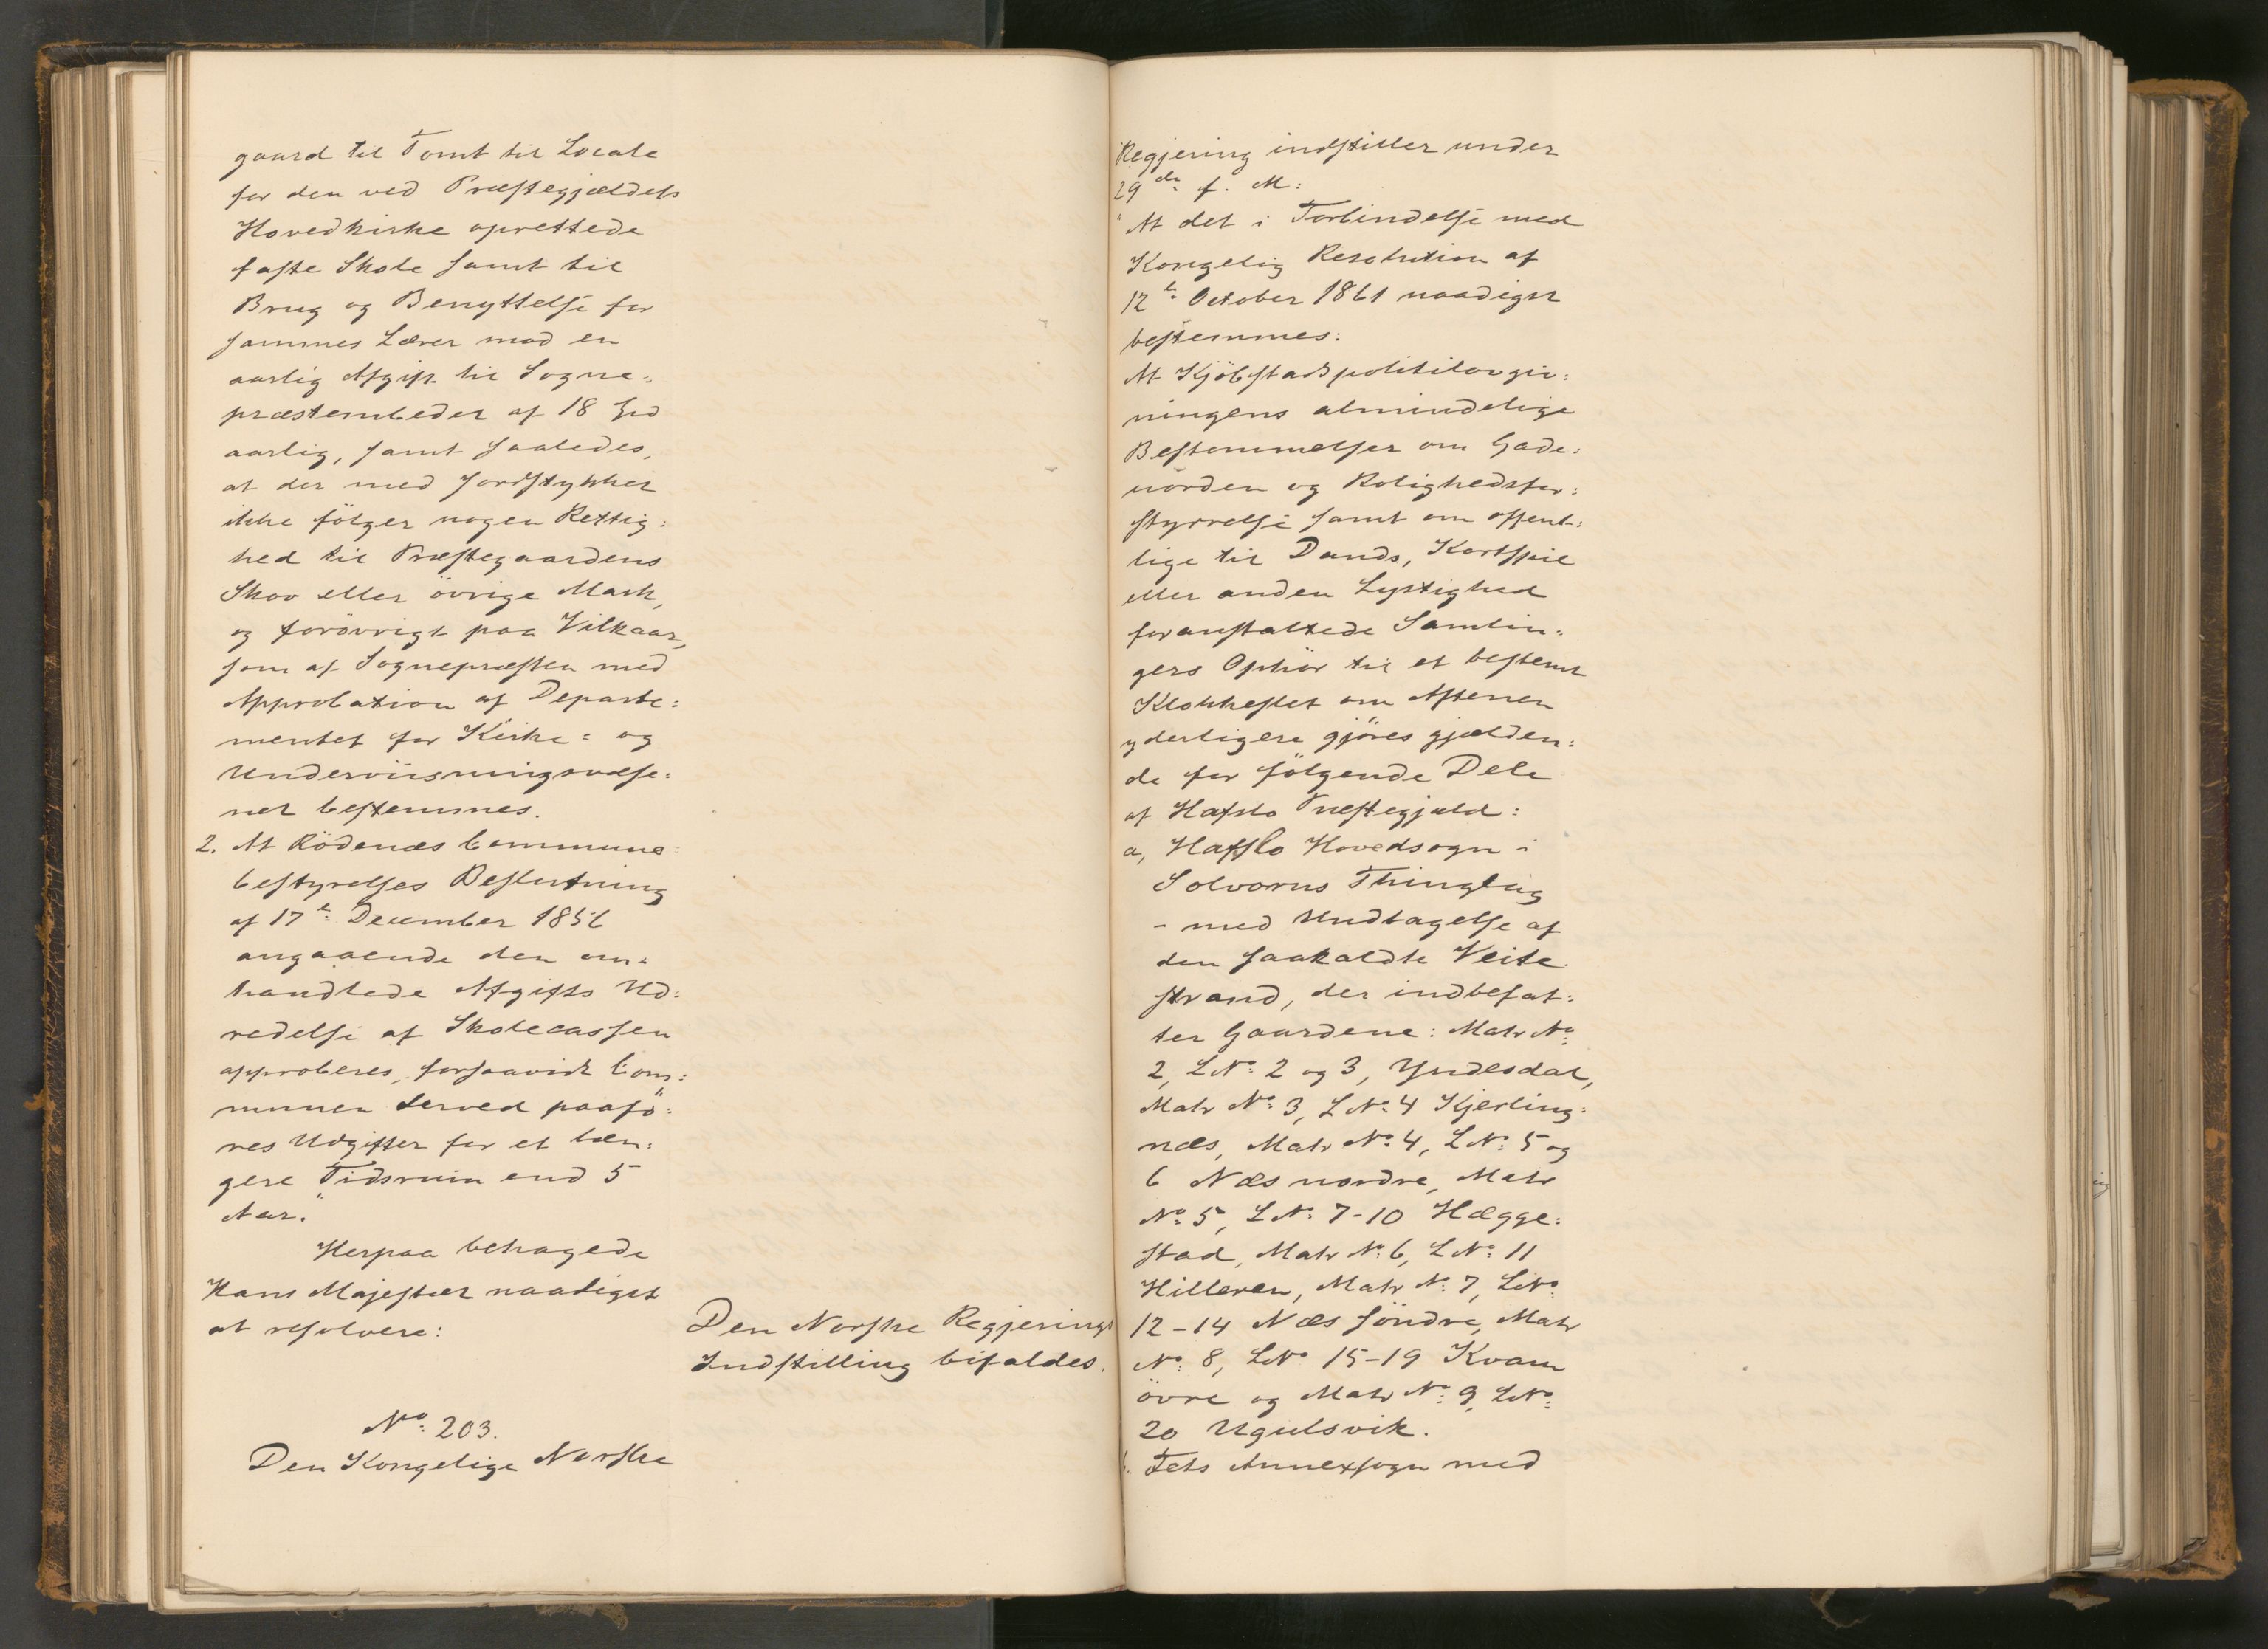 gaard til Tomt til Locale
for den ved Præstegjældets
Hovedkirke oprettede
faste Skole samt til
Brug og Benyttelse for
sammes Lærer mod en
aarlig Afgift til Sogne=
præstembedet af 18 
aarlig, samt saaledes,
at der med Jordstykket
ikke følger nogen Rettig=
hed til Præstegaardens
Skov eller övrige Mark,
og forövrigt paa Vilkaar,
som af Sognepræsten med
Approbation af Departe=
mentet for Kirke= og
Underviisningsvæse=
net bestemmes.
2. At Rödenæs Commune=
bestyrelses Beslutning
af 17t: December 1856
angaaende den om=
handlede Afgifts Ud=
redelse af Skolecassen
approberes, forsaavidt Com=
munen derved paafö=
res Udgifter for et læn=
gere Tidsrum end 5
Aar."
Herpaa behagede
Hans Majestæt naadigst
at resolvere:
Den Norske Regjerings
Indstilling bifaldes.
No: 203.
Den Kongelige Norske
Regjering indstiller under
29de f. M:
"At det i Forbindelse med
Kongelig Resolution af
12t: October 1861 naadigst
bestemmes:
At Kjöbstadspolitilovgiv=
ningens almindelige
Bestemmelser om Gade=
uorden og Rolighedsfor=
styrrelse samt om offent=
lige til Dands, Kortspil
eller anden Lystighed
foranstaltede Samlin=
gers Ophör til et bestemt
Klokkeslet om Aftenen
yderligere gjöres gjælden=
de for fölgende Dele
af Hafslo Præstegjæld:
a, Hafslo Hovedsogn i
Solvorns Thinglag
- med Undtagelse af
den saakaldte Veite=
strand, der indbefat=
ter Gaardene: Matr No:
2, LNo: 2 og 3, Yndesdal,
Matr No: 3, LNo: 4 Kjerling=
næs, Matr No: 4, LNo: 5 og
6 Næs nordre, Matr
No: 5, LNo: 7-10 Hægge=
stad, Matr No: 6, LNo: 11
Hilleren, Matr No: 7, LNo:
12-14 Næs söndre, Matr
No: 8, LNo 15-19 Kvam
övre og Matr No: 9, LNo:
20 Ugulsvik.
b. Fets Annexsogn med